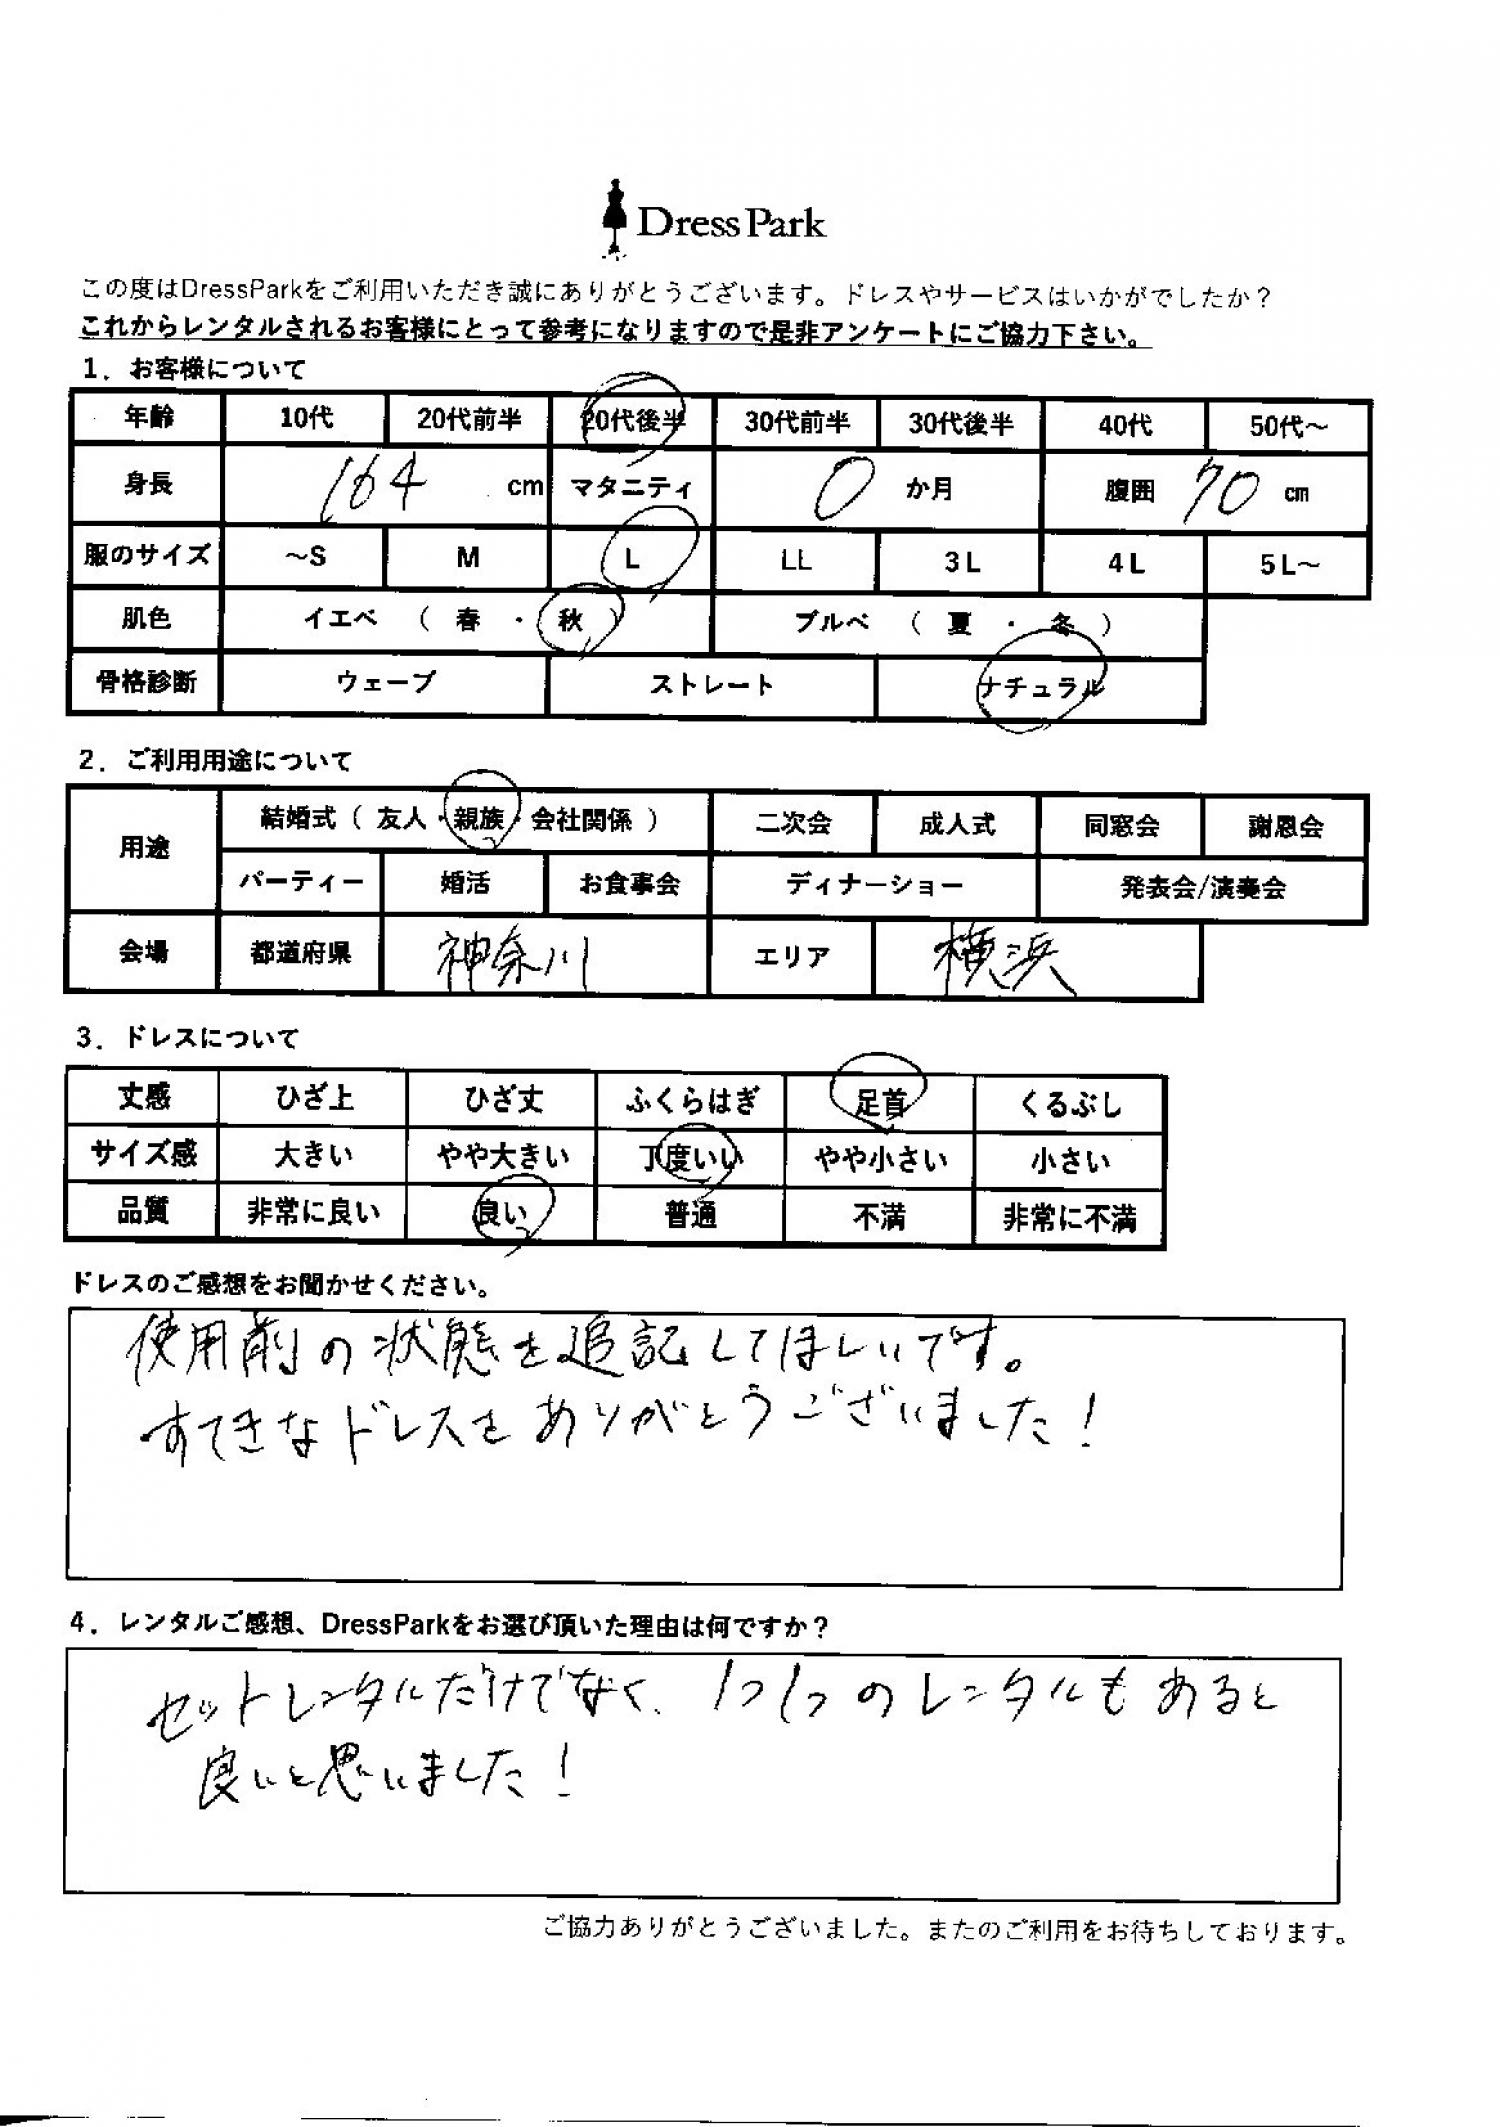 Dress Park
この度はDressParkをご利用いただき誠にありがとうございます。ドレスやサービスはいかがでしたか？
これからレンタルされるお客様にとって参考になりますので是非アンケートにご協力下さい。
1．お客様について
年齢 10代 20代前半 20代後半 30代前半 30代後半 40代 50代～
身長 164 cm マタニティ 0 か月 腹囲 70 cm
服のサイズ ～S M L LL 3L 4L 5L～
肌色 イエベ （ 春 ・ 秋 ） ブルベ （ 夏 ・ 冬 ）
骨格診断 ウェーブ ストレート ナチュラル
2．ご利用用途について
用途 結婚式（ 友人・親族・会社関係 ） 二次会 成人式 同窓会 謝恩会
パーティー 婚活 お食事会 ディナーショー 発表会/演奏会
会場 都道府県 神奈川 エリア 横浜
3．ドレスについて
丈感 ひざ上 ひざ丈 ふくらはぎ 足首 くるぶし
サイズ感 大きい やや大きい 丁度いい やや小さい 小さい
品質 非常に良い 良い 普通 不満 非常に不満
ドレスのご感想をお聞かせください。
使用前の状態を追記してほしいです。
すてきなドレスをありがとうございました！
4．レンタルご感想、DressParkをお選び頂いた理由は何ですか？
セットレンタルだけでなく、1つ1つのレンタルもあると
良いと思いました！
ご協力ありがとうございました。またのご利用をお待ちしております。